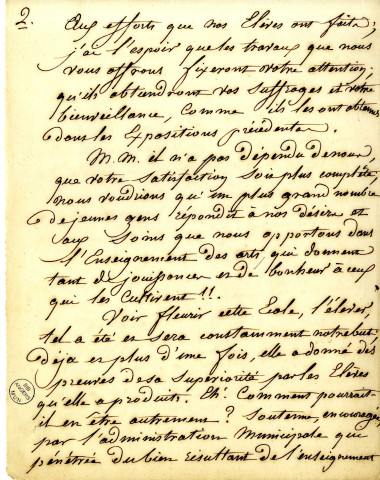 2.
Aux efforts que nos Elèves ont faits,
j'ai l'espoir que les travaux que nous
vous offrons fixeront votre attention;
qu'ils obtiendront vos suffrages et votre
bienveillance, comme ils les ont obtenus
dans les Expositions précédentes.
M.M. il n'a pas dépendu de nous,
que votre satisfaction soit plus complète,
nous voudrions qu'un plus grand nombre
de jeunes gens répondit à nos désirs et
aux soins que nous apportons dans
l'Enseignement des arts, qui donnent
tant de jouissances et de bonheur à ceux
qui les cultivent!!.
Voir fleurir cette Ecole, l'élever,
tel a été et sera constamment notre but
déja et plus d'une fois, elle a donné des
preuves de sa supériorité par les Elèves
qu'elle a produits. Eh! Comment pourrait-
il en être autrement? Soutenue, encouragée,
par l'administration Municipale qui
pénétrée du bien résultant de l'enseignement